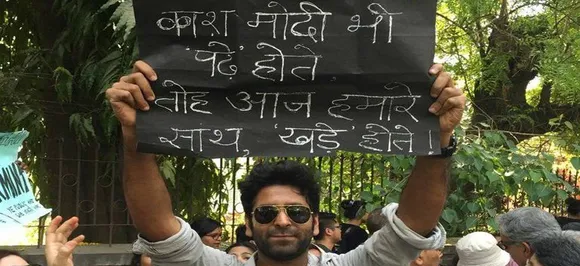 काश मोदी भी
'पढ़े' होते
तोह आज हमारे
साथ, 'खड़े' होते!